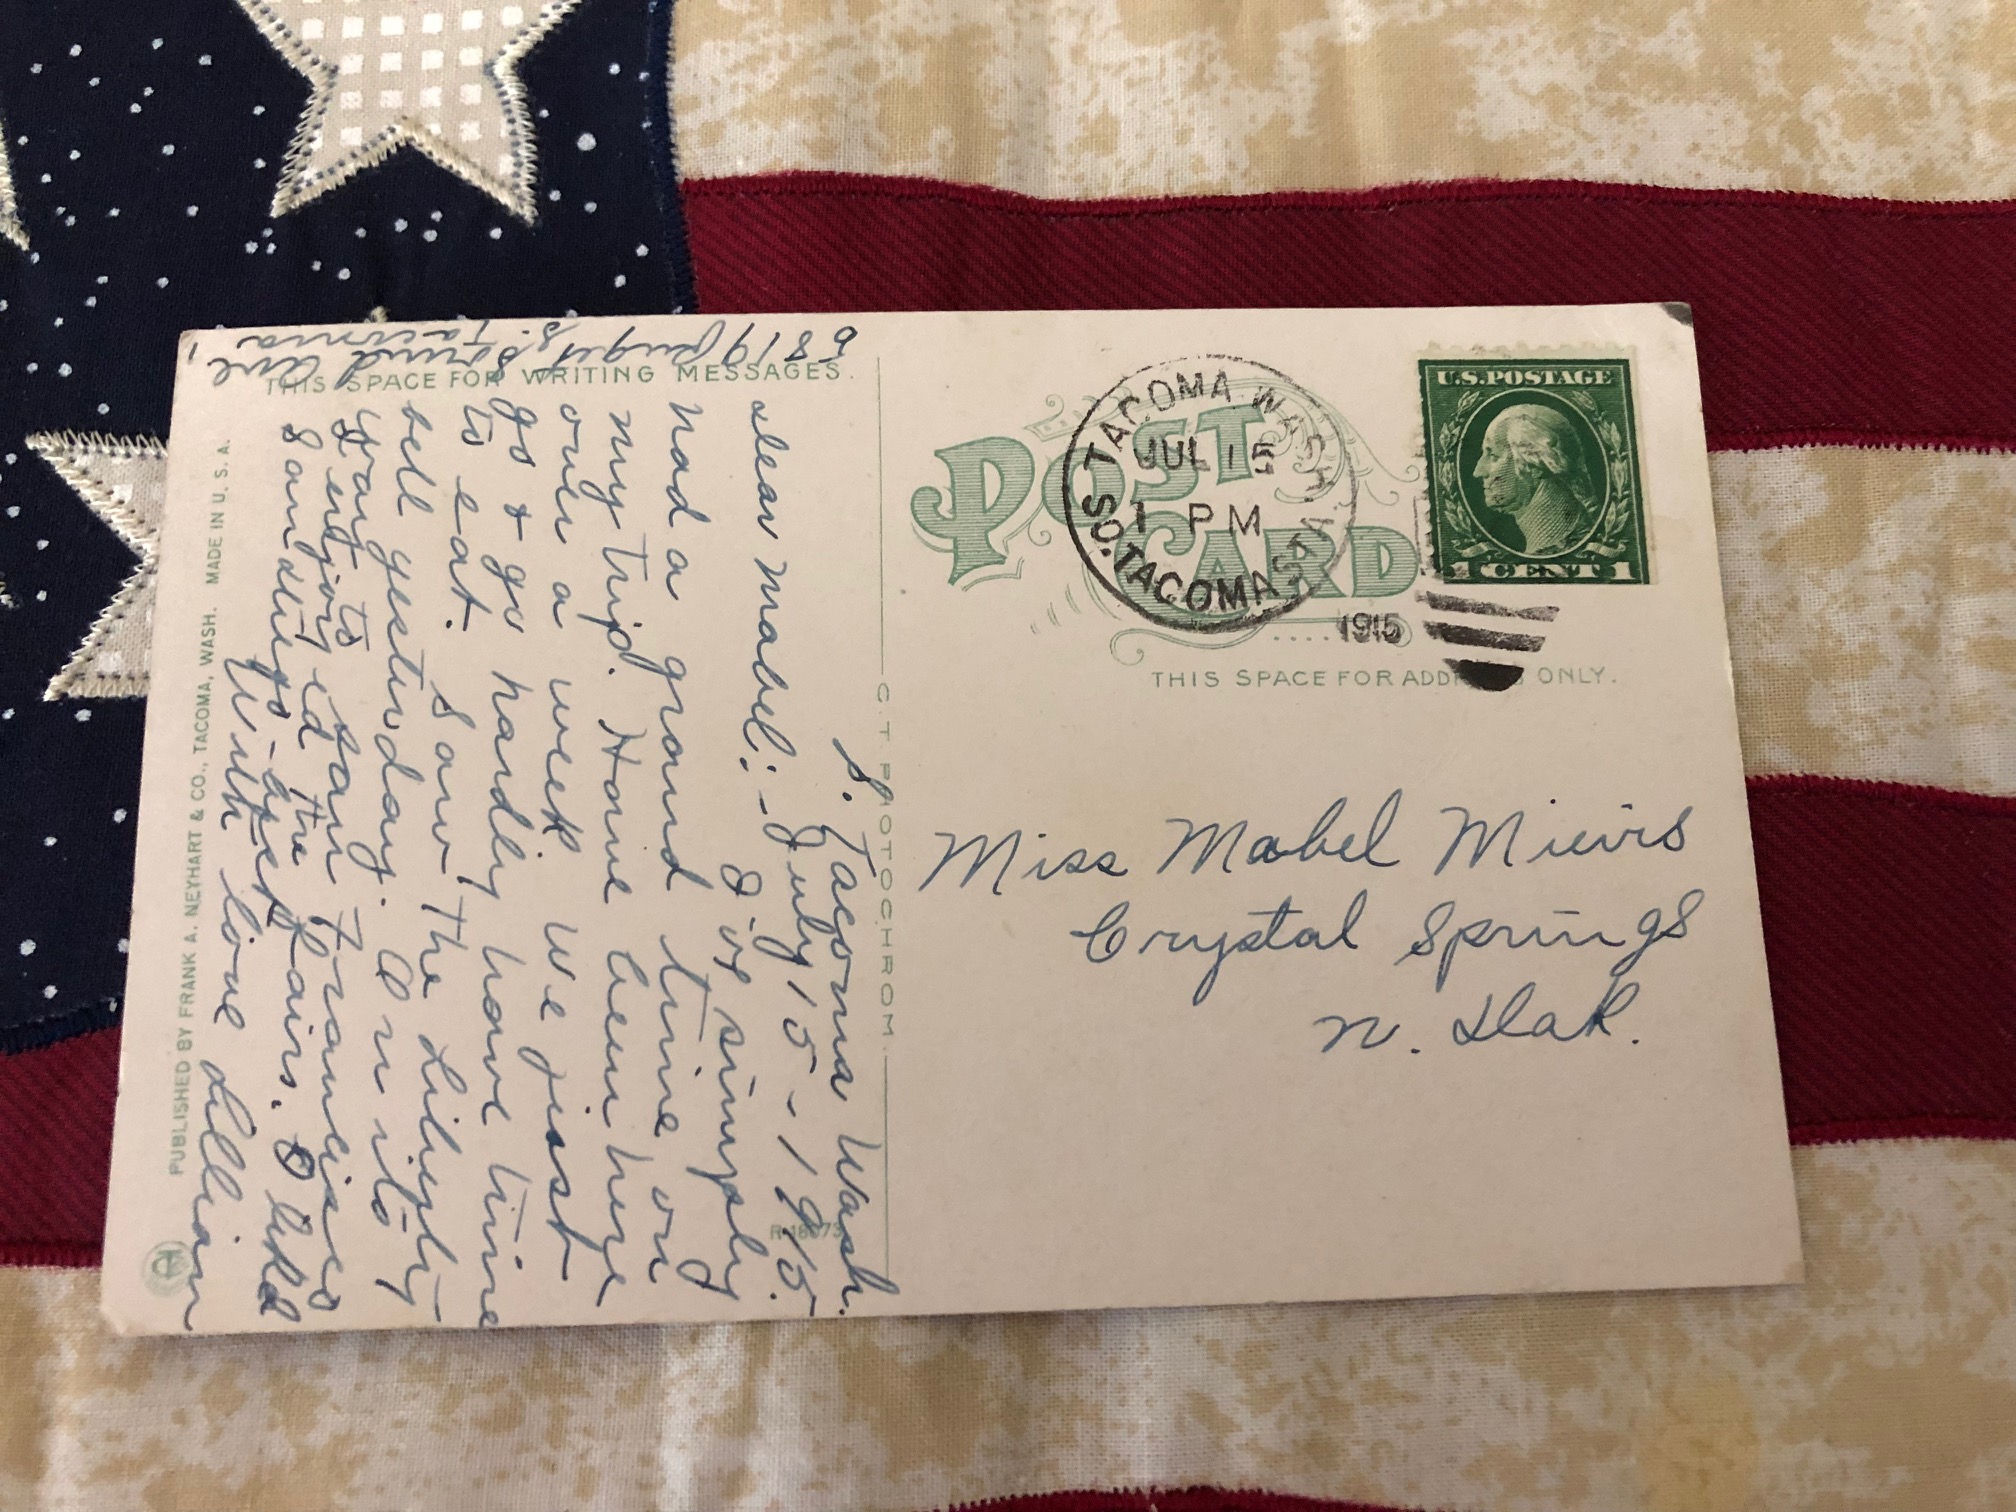 THIS SPACE FOR WRITING MESSAGES.
S. Tacoma Wash.
July 15-1915.
Dear Mabel:- I've simply
had a grand time on
my trip. Have been here
over a week. We just
go & go hardly have time
to eat. Saw the Liberty
bell yesterday. On its
way to San Francisco
Enjoyed the fairs. O that
San Diego
With love Lillian
6819 Puget Sound Ave,
S. Tacoma
PUBLISHED BY FRANK A. NEYHART & CO., TACOMA, WASH. MADE IN U. S. A.
C. T. PHOTOCHROM
POST CARD
TACOMA WASH.
JUL 15
1 PM
SO. TACOMA STA.
1915
U.S. POSTAGE
1 CENT 1
THIS SPACE FOR ADDRESS ONLY.
Miss Mabel Mievis
Crystal Springs
N. Dak.